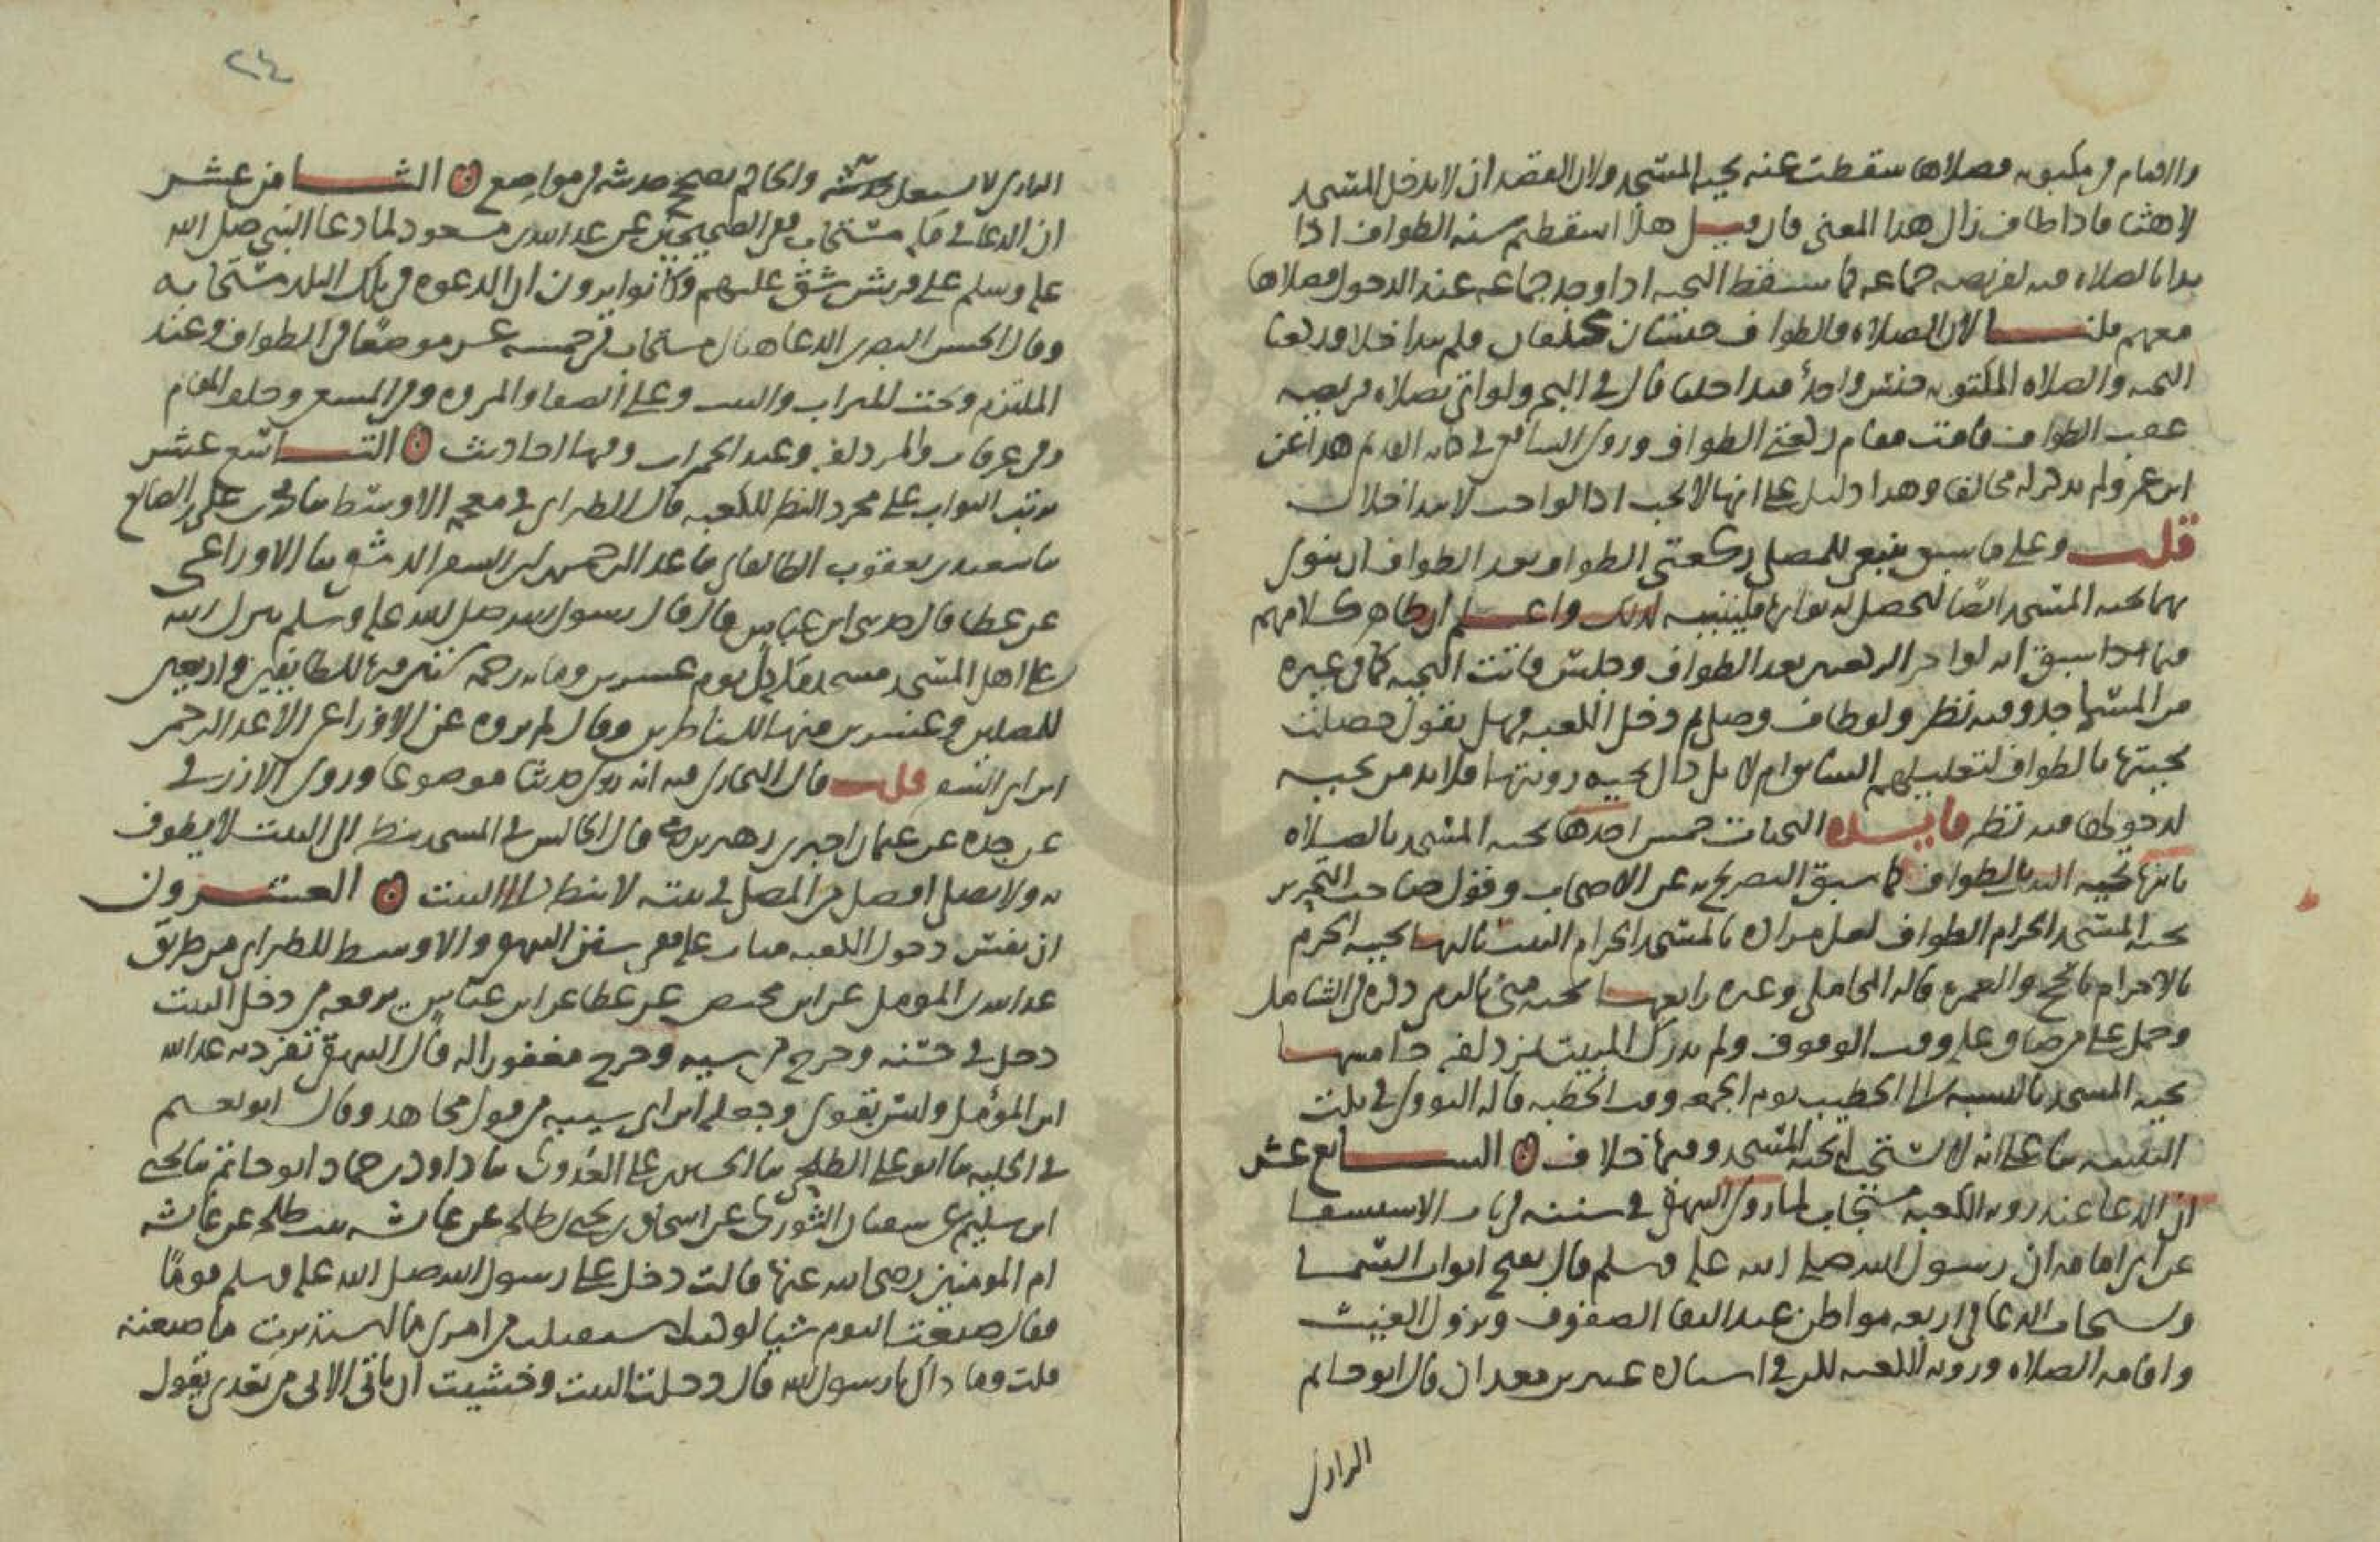 والامام في مكتوبه فصلاها سقطت عنه تحية المسجد ولان القصد ان لا يدخل المسجد
لاهثا فاذا طاف زال هذا المعنى فان قيل هلا اسقطتم سنه الطواف اذا
بدا بالصلاه فيه لفريضه جماعه كما سقط التحيه اذا وجد جماعه عند الدخول فصلاها
معهم قلنا لان الصلاه والطواف جنسان مختلفان فلم يتداخلا وركعتا
التحيه والصلاه المكتوبه جنس واحد فتداخلتا قال في اليم ولو اتى بصلاه فريضه
عقب الطواف قامت مقام ركعتي الطواف وروى الشافعي في كتابه القديم هذا عن
ابن عمر ولم يذكر له مخالفا وهذا دليل على انها لا تجب اذ الواجب لا يتداخلان
قلت وعلى ما سبق ينبغي للمصلي ركعتي الطواف بعد الطواف ان ينوي
بهما تحيه المسجد ايضا ليحصل له ثوابها فليتنبه لذلك واعلم ان ظاهر كلامهم
فيما سبق انه لو اخر الركعتين بعد الطواف وجلس فاتت التحيه كما في غيره
من المساجد وفيه نظر ولو طاف وصلى ثم دخل الكعبه فهل يقول حصلت
تحيتها بالطواف لتعليلهم السابق ام لا بل ذاك تحيه رويتها فلا بد من تحيه
لدخولها فيه نظر فايده التحيات خمس احدها تحيه المسجد بالصلاه
ثانيها تحيه البيت بالطواف كما سبق التصريح به عن الاصحاب وقول صاحب التحرير
تحيه المسجد الحرام الطواف لعل مراده بالمسجد الحرام البيت ثالثها تحيه الحرم
بالاحرام بالحج والعمره قاله المحاملي وغيره رابعها تحيه منى بالرمي ذكره في الشامل
وحمل على من ضاق عليه وقت الوقوف ولم يدرك المبيت بمزدلفه خامسها
تحيه المسجد بالنسبه الى الخطيب يوم الجمعه وقت الخطبه قاله النووي في نكت
التنبيه بنا على انه لا يستحب له تحيه المسجد وفيها خلاف السابع عشر
ان الدعا عند رويه الكعبه مستجاب لما روى البيهقي في سننه في باب الاستسقا
عن ابي امامه ان رسول الله صلى الله عليه وسلم قال تفتح ابواب السما
ويستجاب الدعا في اربعه مواطن عند التقا الصفوف ونزول الغيث
واقامه الصلاه ورويه الكعبه لكن في اسناده عفير بن معدان قال ابو حاتم
الرازي
٢٤
الرازي لا يشتغل بحديثه والحاكم يصحح حديثه في مواضع الثامن عشر
ان الدعا في مكه مستجاب ففي الصحيحين عن عبد الله بن مسعود لما دعا النبي صلى الله
عليه وسلم على قريش شق عليهم وكانوا يرون ان الدعوه في تلك البلد مستجابه
وقال الحسن البصري الدعا هناك مستجاب في خمسه عشر موضعا في الطواف وعند
الملتزم وتحت الميزاب والبيت وعلى الصفا والمروه وفي المسعى وخلف المقام
وفي عرفات والمزدلفه وعند الجمرات وفيها احاديث التاسع عشر
ترتب الثواب على مجرد النظر للكعبه قال الطبراني في معجمه الاوسط محمد بن علي الصايغ
ثنا سعيد بن يعقوب الطالقاني ثنا عبد الرحمن بن السفر الدمشقي ثنا الاوزاعي
عن عطا قال حدثني ابن عباس قال قال رسول الله صلى الله عليه وسلم ينزل الله
على اهل المسجد مسجد مكه كل يوم عشرين ومايه رحمه ستين منها للطايفين واربعين
للمصلين وعشرين منها للناظرين وقال لم يروه عن الاوزاعي الا عبد الرحمن
ابن السفر قلت قال البخاري فيه انه روى حديثا موضوعا وروى الازرقي
عن جده عن عثمان اخبرني زهير بن محمد قال الجالس في المسجد ينظر الى البيت لا يطوف
به ولا يصلي افضل من المصلي في بيته لا ينظر الى البيت العشرون
ان نفس دخول الكعبه مثاب عليه ففي سنن البيهقي والاوسط للطبراني من طريق
عبد الله بن المومل عن ابن محيصن عن عطا عن ابن عباس يرفعه من دخل البيت
دخل في حسنه وخرج من سيه وخرج مغفورا له قال البيهقي تفرد به عبد الله
ابن المؤمل وليس بقوي وجعله ابن ابي شيبه من قول مجاهد وقال ابو نعيم
في الحليه ثنا ابو علي الطلحي ثنا الحسين بن علي العدوي ثنا داود بن حماد ابو حاتم ثنا يحيى
ابن سليم عن سفيان الثوري عن اسحاق بن يحيى بن طلحه عن عايشه بنت طلحه عن عايشه
ام المومنين رضي الله عنها قالت دخل علي رسول الله صلى الله عليه وسلم يوما
فقال صنعت اليوم شيا لو استقبلت من امري ما استدبرت ما صنعته
قلت وما ذاك يا رسول الله قال دخلت البيت وخشيت ان ياتي الاتي من بعدي يقول